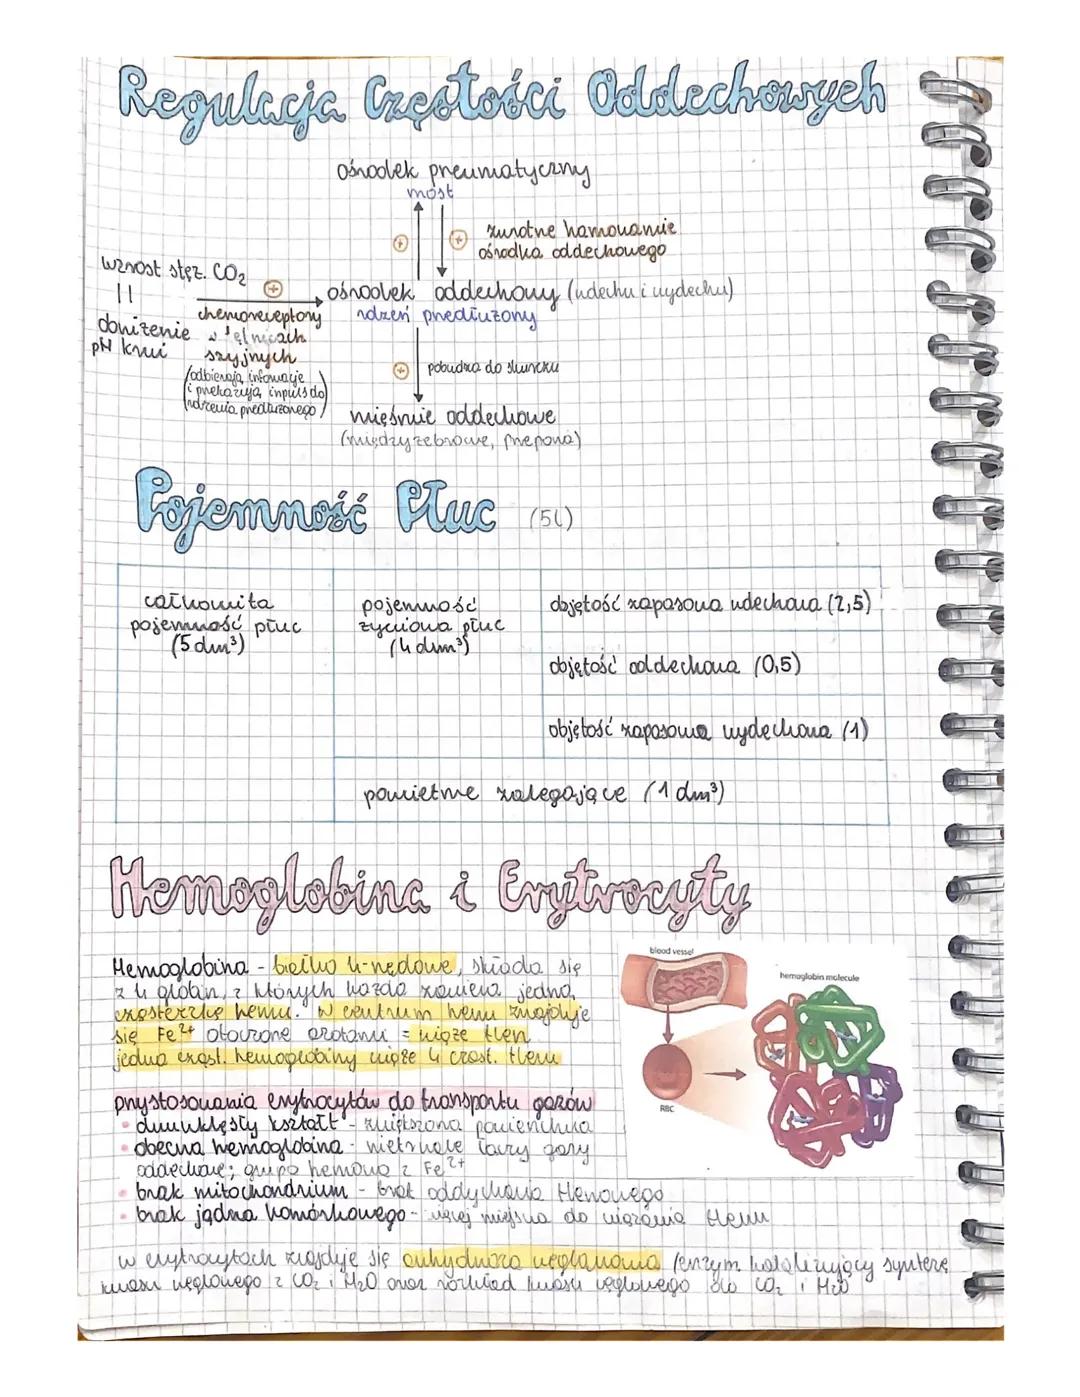 Regulacja Częstości Oddechowych
ośrodek pneumatyczny
most
zwrotne hamowanie
ośrodka oddechowego
wzrost stęż. CO₂
||
obniżenie
pH krwi
chemoreceptory
w tętnicach
szyjnych
(odbierają informacje
i przekazują inpuls do
rdzenia przedłużonego)
ośrodek oddechowy (wdechu i wydechu)
rdzeń przedłużony
pobudza do skurczu
mięśnie oddechowe
(międzyżebrowe, przepona)
Pojemność Płuc (5l)
całkowita
pojemność płuc
(5 dm³)
pojemność
życiowa płuc
(4 dm³)
objętość zapasowa wdechowa (2,5)
objętość oddechowa (0,5)
objętość zapasowa wydechowa (1)
powietrze zalegające (1 dm³)
Hemoglobina i Erytrocyty
Hemoglobina - białko 4-rzędowe, składa się
z 4 globin, z których każda zawiera jedną
cząsteczkę hemu. W centrum hemu znajduje
się Fe²⁺ otoczone azotami = wiąże tlen
jedna cząst. hemoglobiny wiąże 4 cząst. tlenu
blood vessel
hemoglobin molecule
RBC
przystosowania erytrocytów do transportu gazów
• dwuwklęsły kształt - zwiększona powierzchnia
• obecna hemoglobina - nietrwale łączy gazy
oddechowe; grupa hemowa z Fe²⁺
• brak mitochondrium - brak oddychania tlenowego
• brak jądra komórkowego - więcej miejsca do wiązania tlenu
w erytrocytach znajduje się anhydraza węglanowa (enzym katalizujący syntezę
kwasu węglowego z CO₂ i H₂O oraz rozkład kwasu węglowego do CO₂ i H₂O